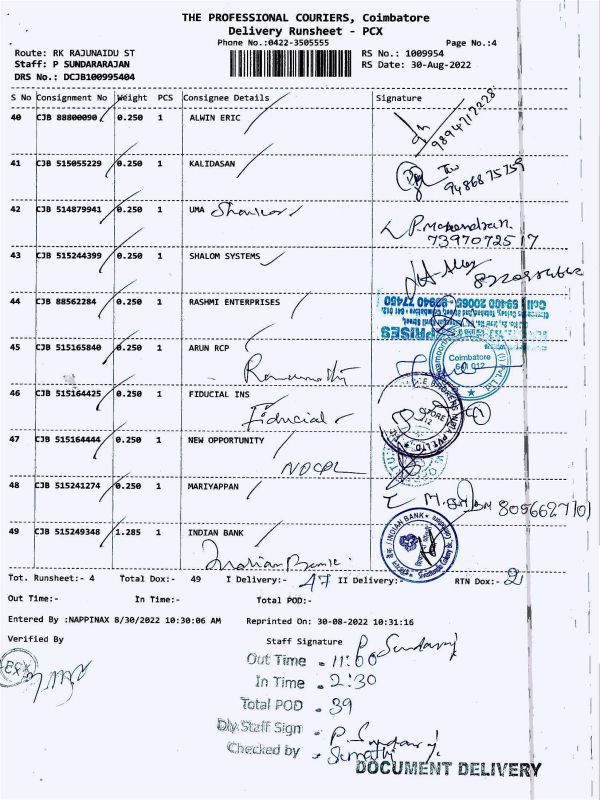 THE PROFESSIONAL COURIERS, Coimbatore
Delivery Runsheet - PCX
Phone No.:0422-3505555
Page No.:4
Route: RK RAJUNAIDU ST
RS No.: 1009954
Staff: P SUNDARARAJAN
RS Date: 30-Aug-2022
DRS No.: DCJB100995404
S No Consignment No Weight PCS Consignee Details Signature
40 CJB 88800090 0.250 1 ALWIN ERIC
9894712228
41 CJB 515055229 0.250 1 KALIDASAN
9486875759
42 CJB 514879941 0.250 1 UMA Shankar
P. Mahendran.
7397072517
43 CJB 515244399 0.250 1 SHALOM SYSTEMS
44 CJB 88562284 0.250 1 RASHMI ENTERPRISES
Cell : 99400 20065 - 92940 77450
45 CJB 515165840 0.250 1 ARUN RCP
Coimbatore
641 012
46 CJB 515164425 0.250 1 FIDUCIAL INS
Fiducial
47 CJB 515164444 0.250 1 NEW OPPORTUNITY
NOCPL
48 CJB 515241274 0.250 1 MARIYAPPAN
49 CJB 515249348 1.285 1 INDIAN BANK
Indian Bank.
INDIAN BANK
Tot. Runsheet:- 4 Total Dox:- 49 I Delivery:- 47 II Delivery:- RTN Dox:- 2
Out Time:- In Time:- Total POD:-
Entered By :NAPPINAX 8/30/2022 10:30:06 AM Reprinted On: 30-08-2022 10:31:16
Verified By Staff Signature P. Sundaraj
Out Time - 11:00
In Time - 2:30
Total POD - 39
Dly.Staff Sign - P. Sundaraj.
Checked by - Sumathi
DOCUMENT DELIVERY